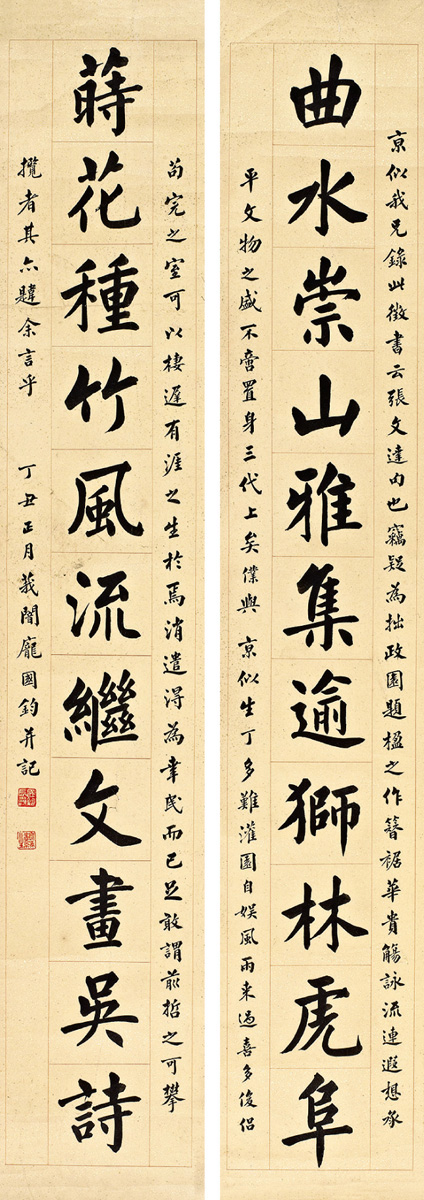 亰似我兄錄此徵書云張文達句也竊疑為拙政園題楹之作簪裾華貴觴詠流連遐想承
曲水崇山雅集逾獅林虎阜
平文物之盛不啻置身三代上矣僕與 亰似生丁多難灌園自娛風雨來過喜多俊侶
苟完之室可以棲遲有涯之生於焉消遣得為幸民而已足敢謂前哲之可攀
蒔花種竹風流繼文畫吳詩
攬者其亦韙余言乎 丁丑正月莪闇龐國鈞并記